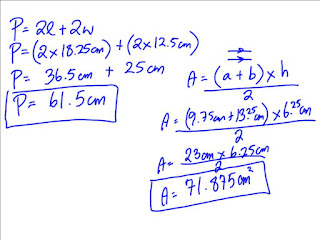 P = 2l + 2w
P = (2 x 18.25cm) + (2 x 12.5cm)
P = 36.5cm + 25cm
P = 61.5cm
A = (a + b) x h
2
A = (9.75cm + 13.25cm) x 6.25cm
2
A = 23cm x 6.25cm
2
A = 71.875cm²